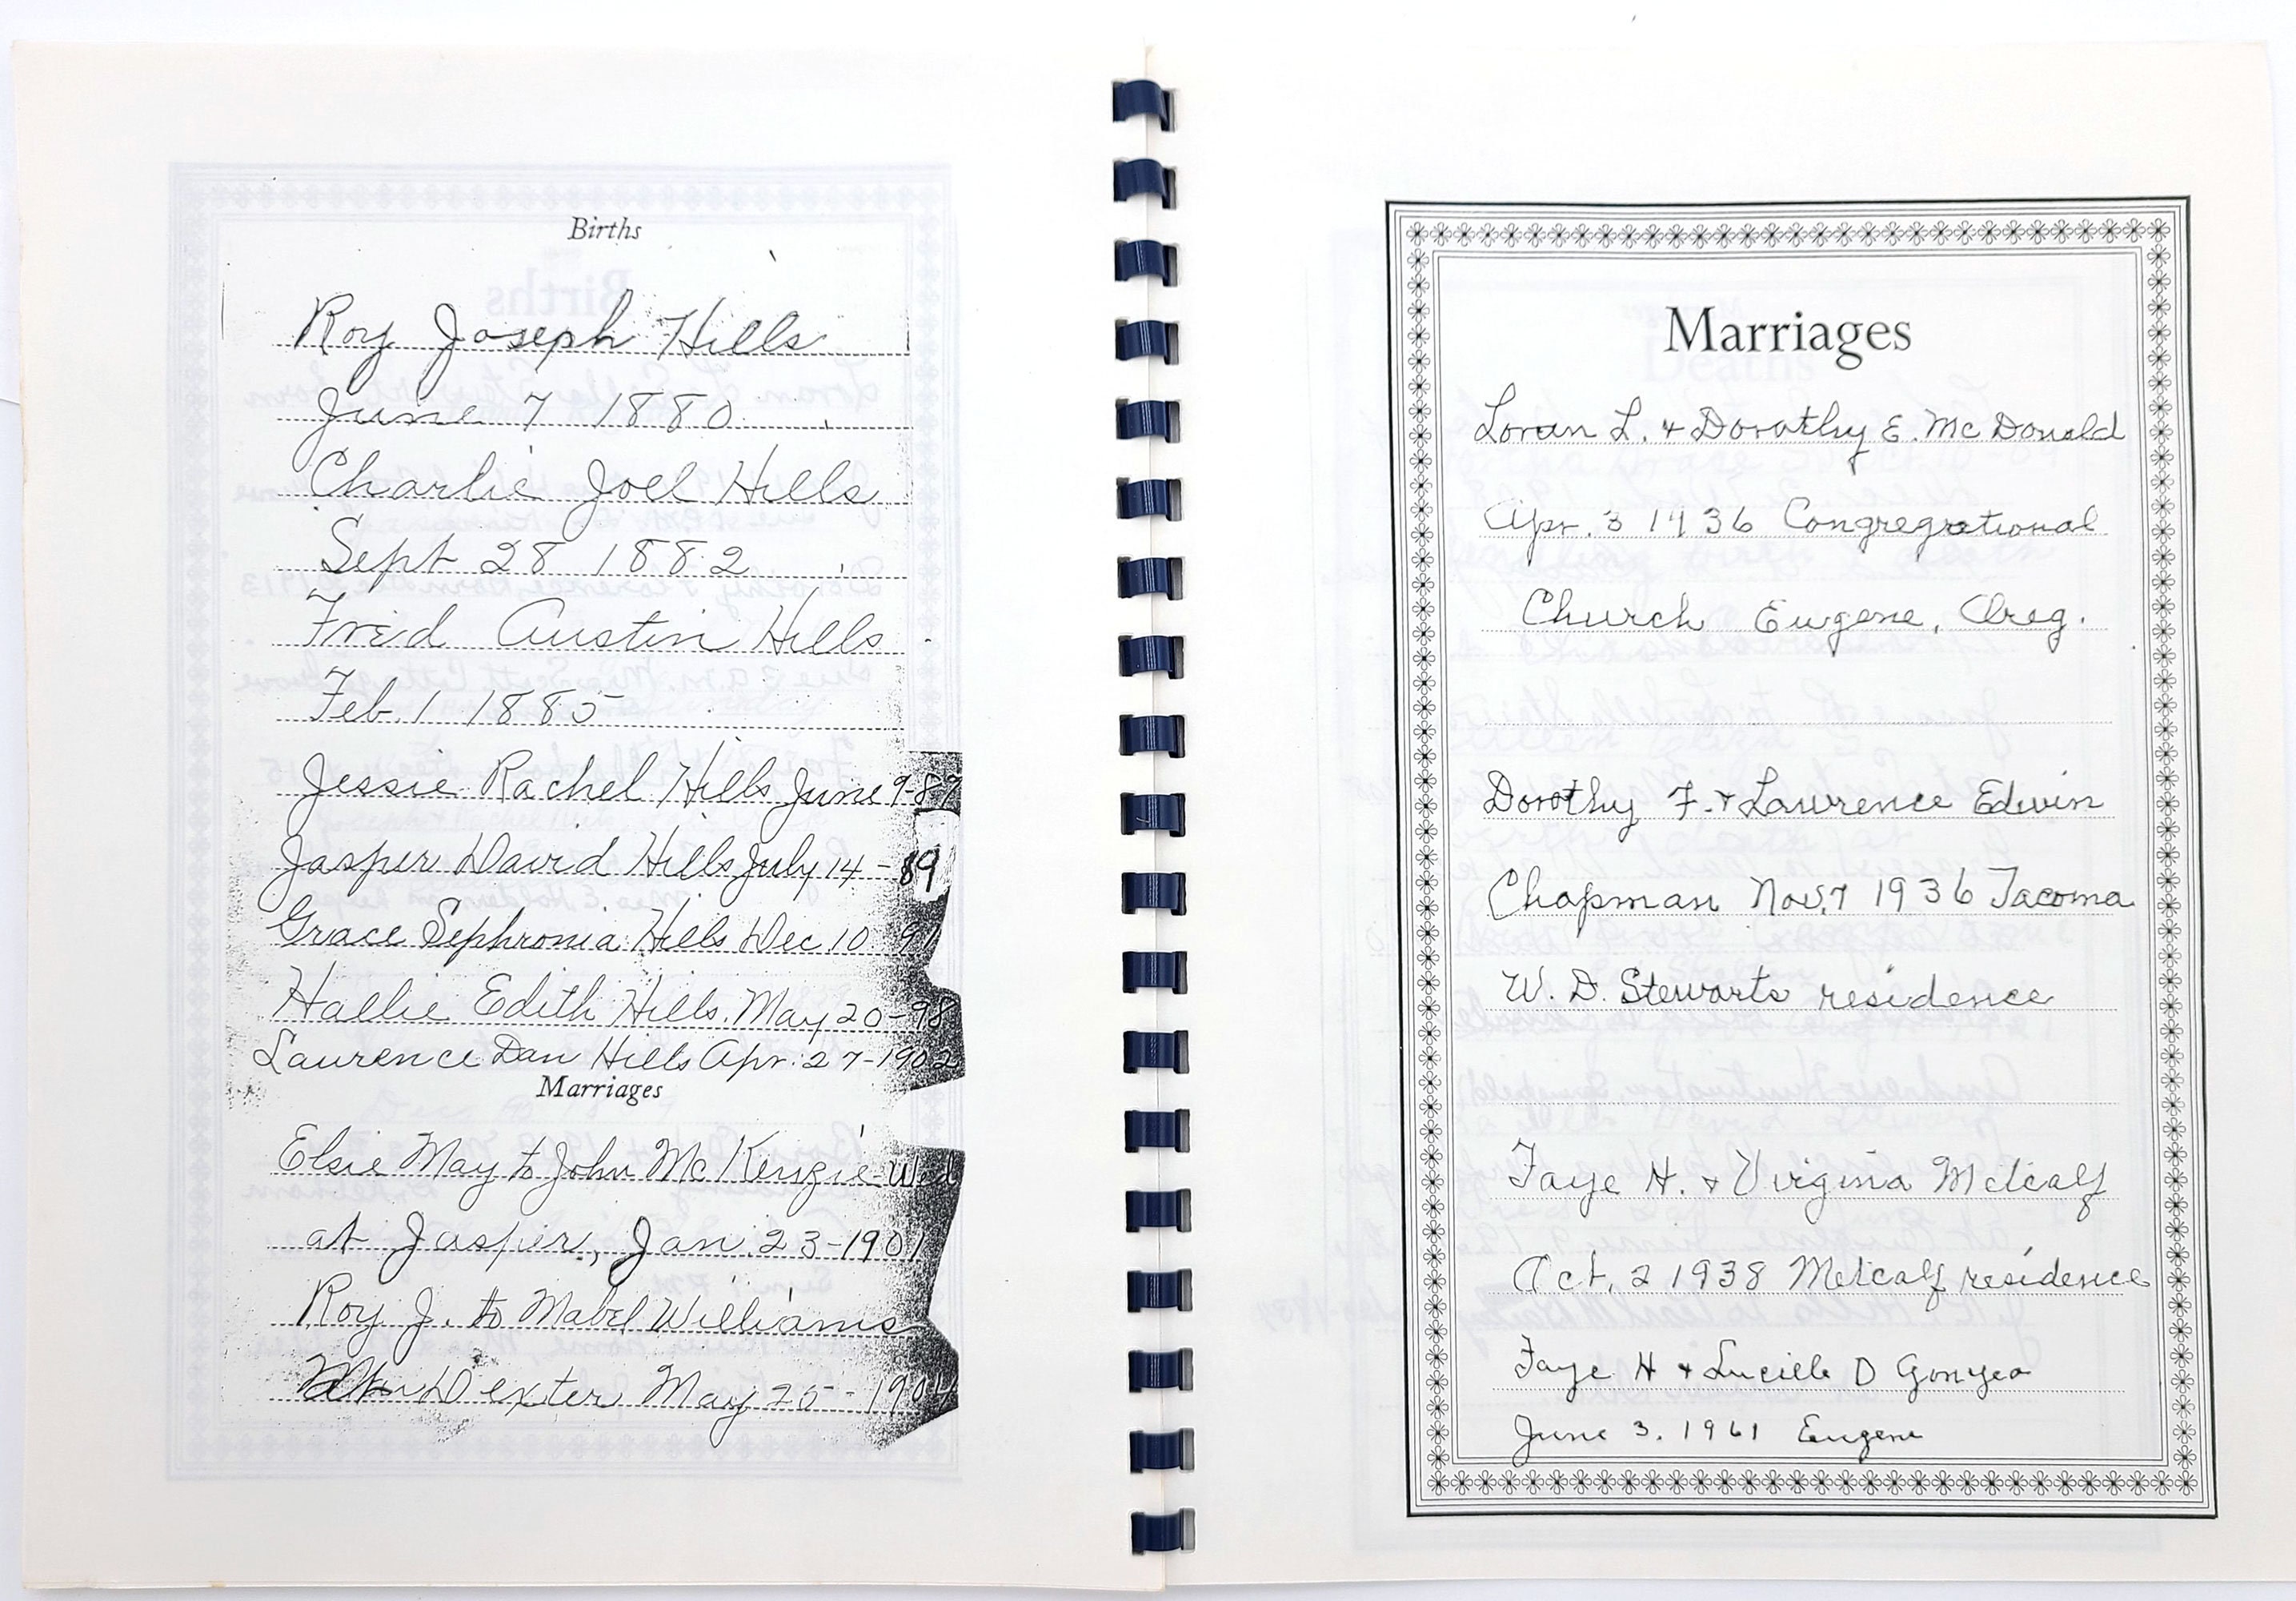 Births
Roy Joseph Hills
June 7 1880
Charlie Joel Hills
Sept 28 1882
Fred Austin Hills
Feb. 1 1885
Jessie Rachel Hills June 9-87
Jasper David Hills July 14-89
Grace Sephronia Hills Dec 10 91
Hallie Edith Hills. May 20-98
Laurence Dan Hills Apr. 27-1902
Marriages
Elsie May to John McKenzie-Wed
at Jasper, Jan. 23-1901
Roy J. to Mabel Williams
Dexter May 25-1904
Marriages
Loran L. + Dorothy E. McDonald
Apr. 3 1936 Congregational
Church Eugene, Oreg.
Dorothy F. + Lawrence Edwin
Chapman Nov. 7 1936 Tacoma
W. D. Stewarts residence
Faye H. + Virginia Metcalf
Oct. 2 1938 Metcalf residence
Faye H + Lucille D Gonyea
June 3. 1961 Eugene